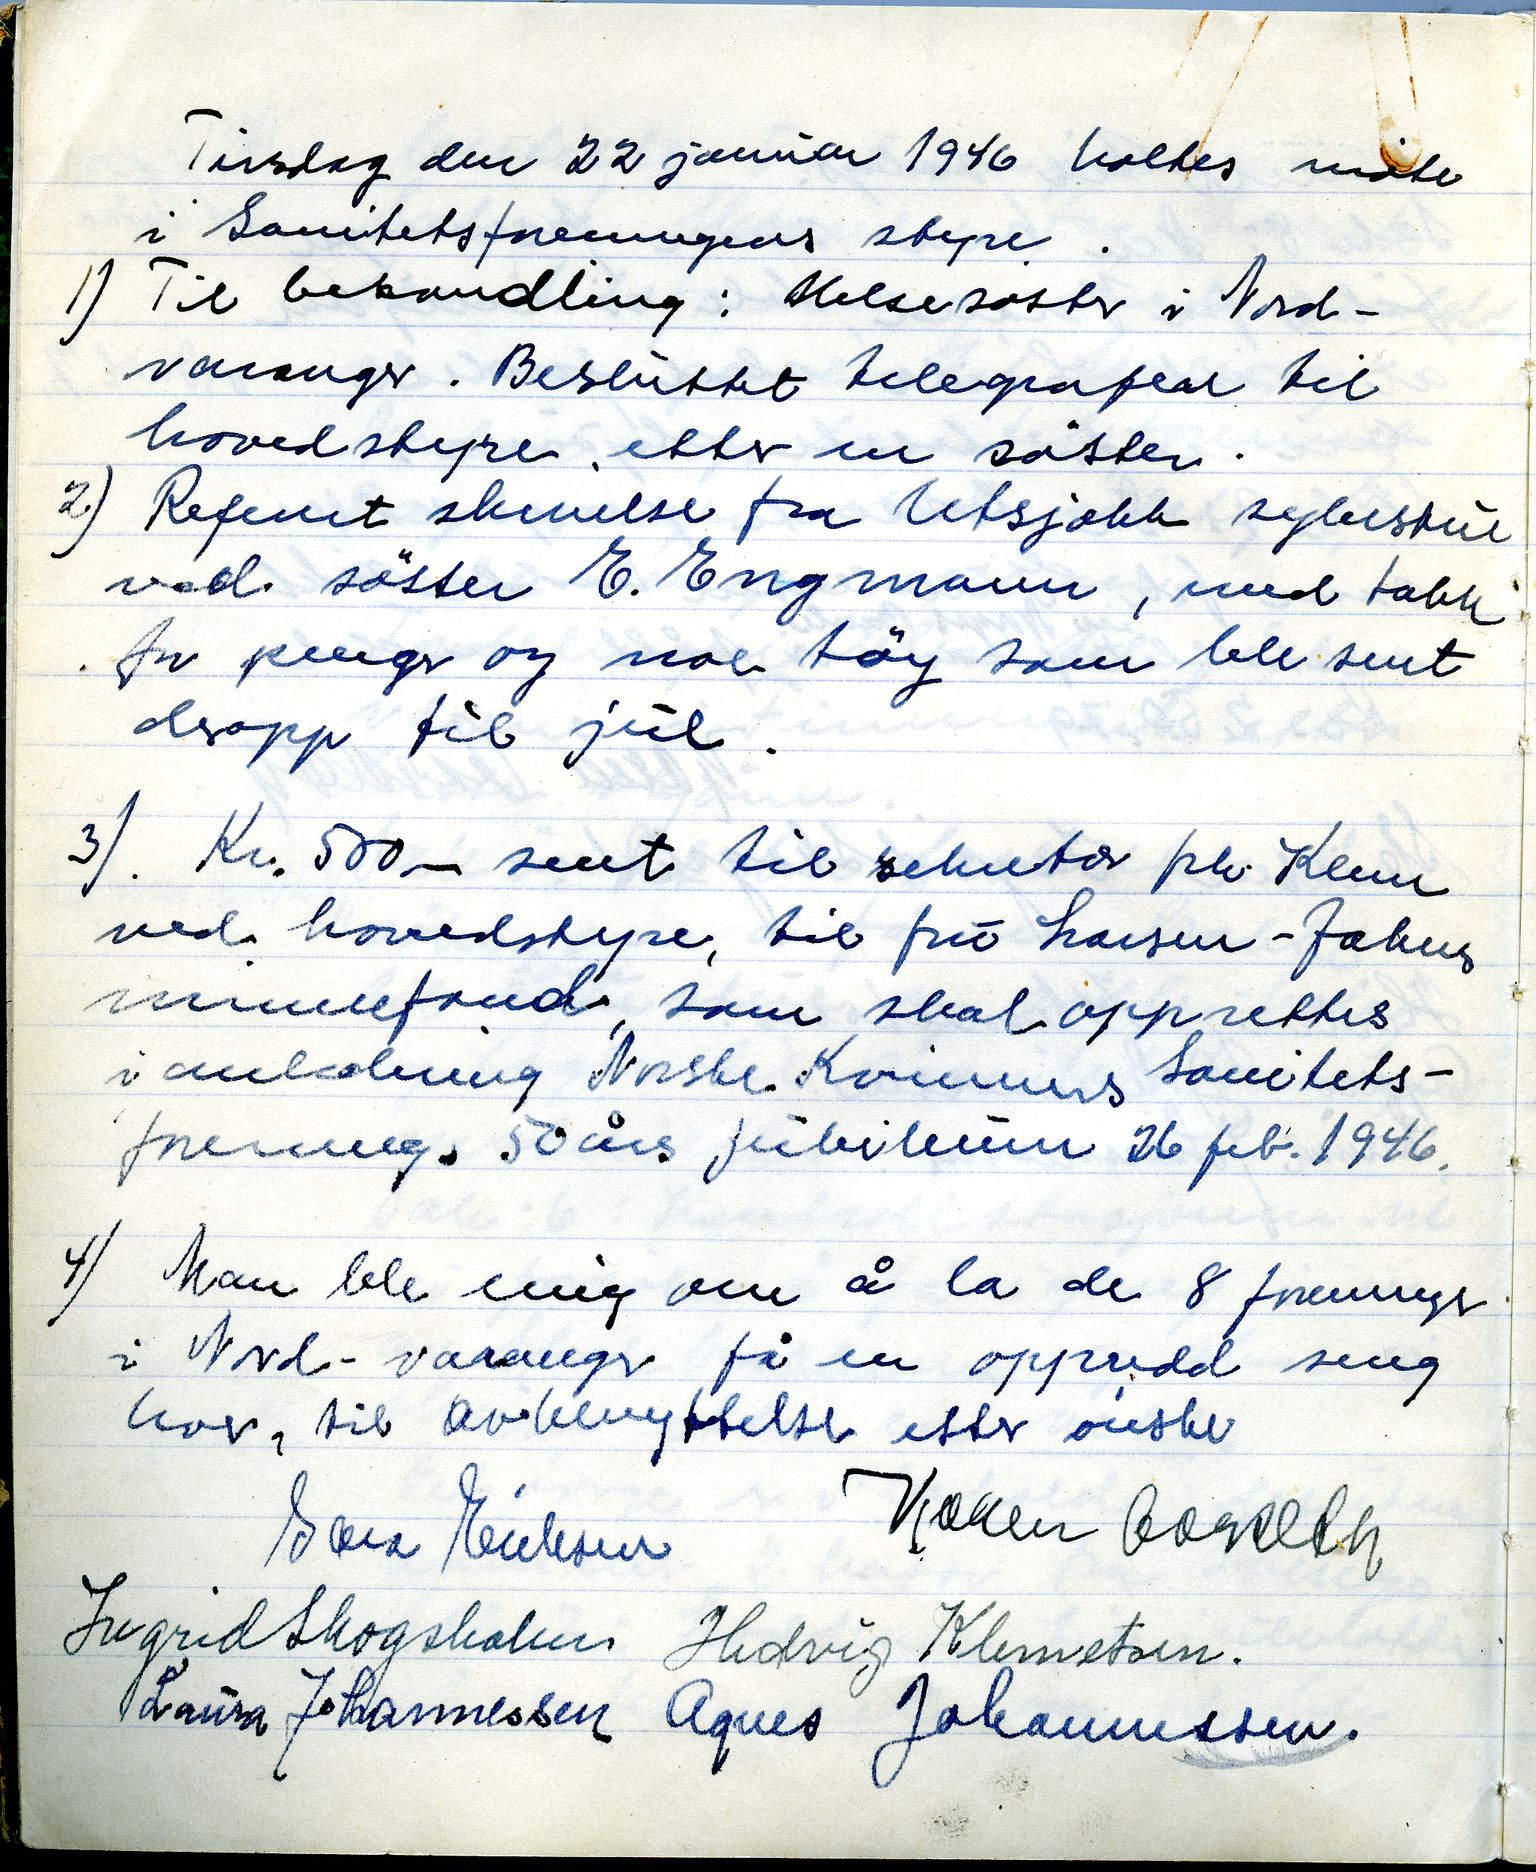 Tirsdag den 22 januar 1946 holtes møte
i Sanitetsforeningens styre.
1) Til behandling: Helsesøster i Nord-
varanger. Besluttet telegrafere til
hovedstyre etter en söster.
2) Referert skrivelse fra Utsjokk sykestue
ved söster E. Engmann, med takk
for penger og noe töy som ble sent
deropp til jul.
3). Kr. 500,- sent til sekretær frk. Klem
ved hovedstyre, til fru Larsen-Jahns
minnefond, som skal opprettes
i anledning Norske Kvinners Sanitets-
forening. 50 års jubileum 26 feb. 1946.
4) Man ble enig om å la de 8 foreninger
i Nord-varanger få en oppredd seng
hver, til avbenyttelse etter ønske
Eriksen
Ingrid Skogsholm Hedvig Klemetsen.
Laura Johannessen Agnes Johannessen.